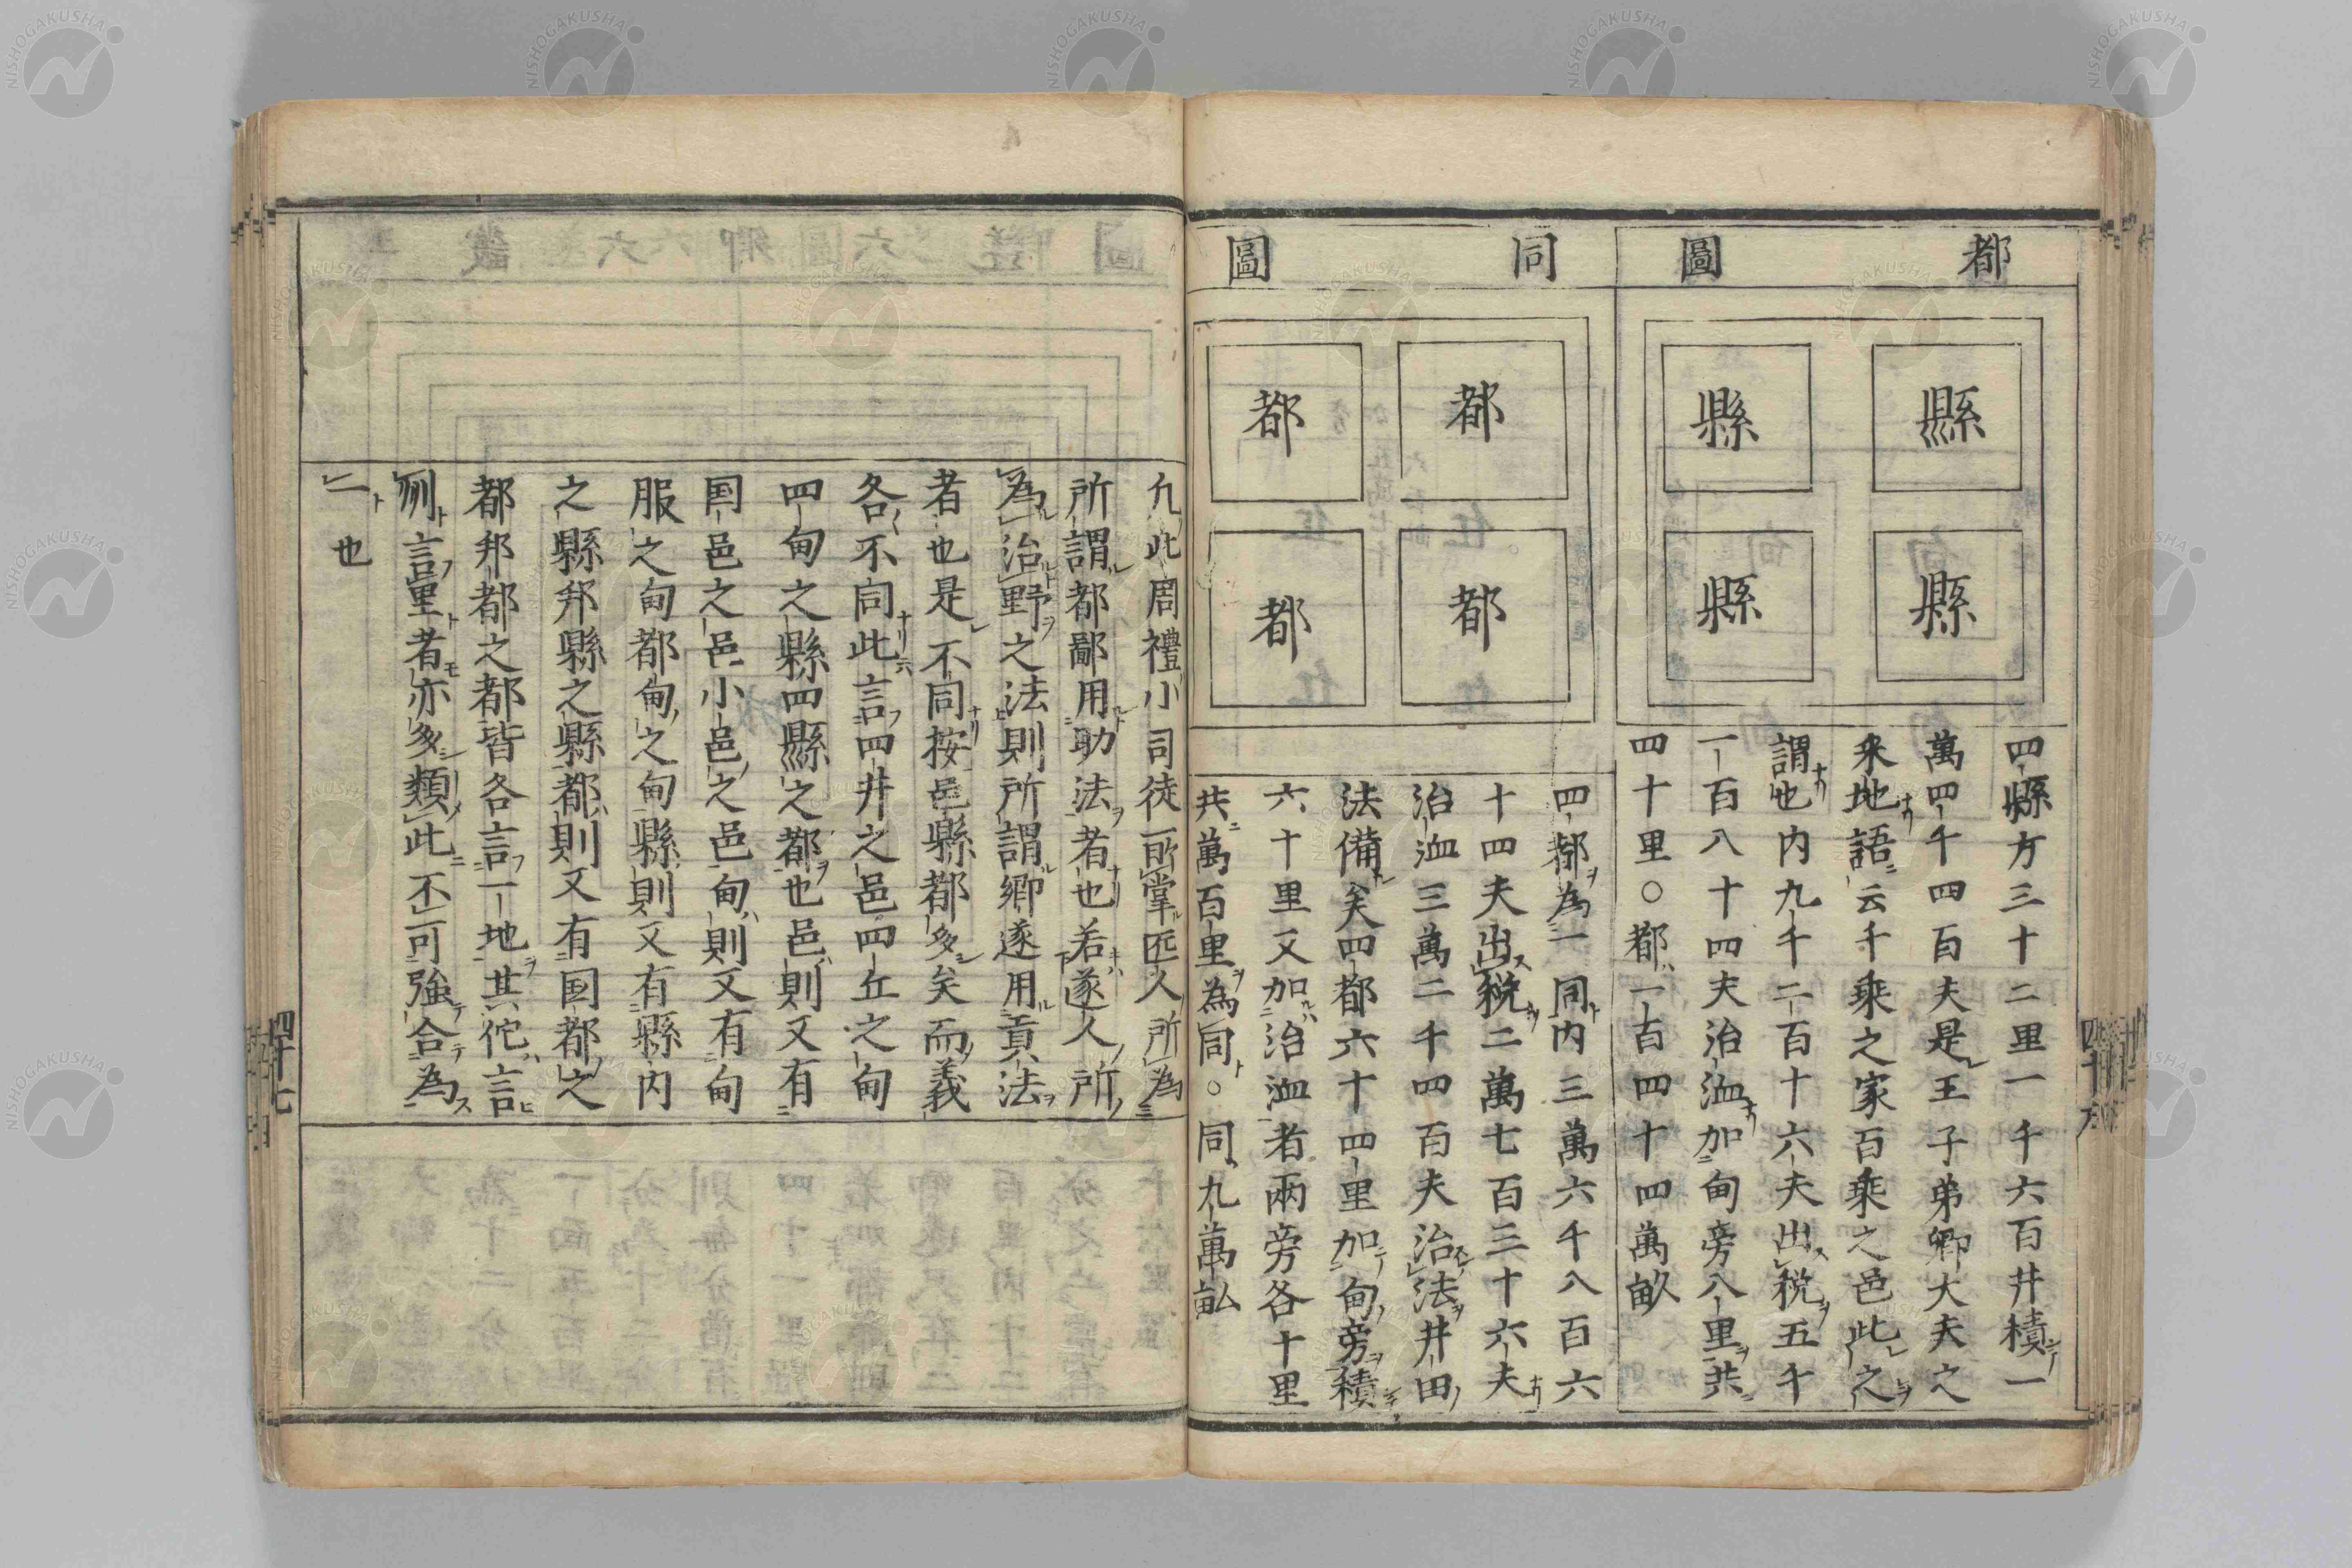 都圖
縣
縣
縣
縣
四縣方三十二里一千六百井積一
萬四千四百夫是王子弟卿大夫之
采地語云千乘之家百乘之邑此之
謂也内九千二百十六夫出税五千
一百八十四夫治洫加甸旁八里共
四十里○都一百四十四萬畝
同圖
都
都
都
都
四都為一同内三萬六千八百六
十四夫出税二萬七百三十六夫
治洫三萬二千四百夫治法井田
法備矣四都六十四里加甸旁積
六十里又加治洫者兩旁各十里
共萬百里為同○同九萬畝
凢此周禮小司徒所掌匠人所為
所謂都鄙用助法者也若遂人所
為治野之法則所謂鄉遂用貢法
者也是不同按邑縣都多矣而義
各不同此言四井之邑四丘之甸
四甸之縣四縣之都也邑則又有
国邑之邑小邑之邑甸則又有甸
服之甸都甸之甸縣則又有縣内
之縣邦縣之縣都則又有国都之
都邦都之都皆各言一地其佗言
例言里者亦多類此不可強合為
一也
四十七